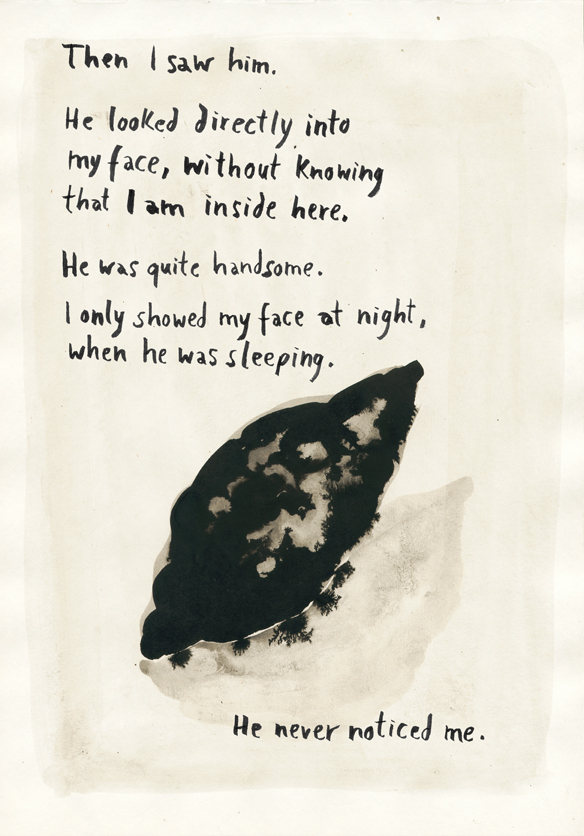 Then I saw him.
He looked directly into
my face, without knowing
that I am inside here.
He was quite handsome.
I only showed my face at night,
when he was sleeping.
He never noticed me.